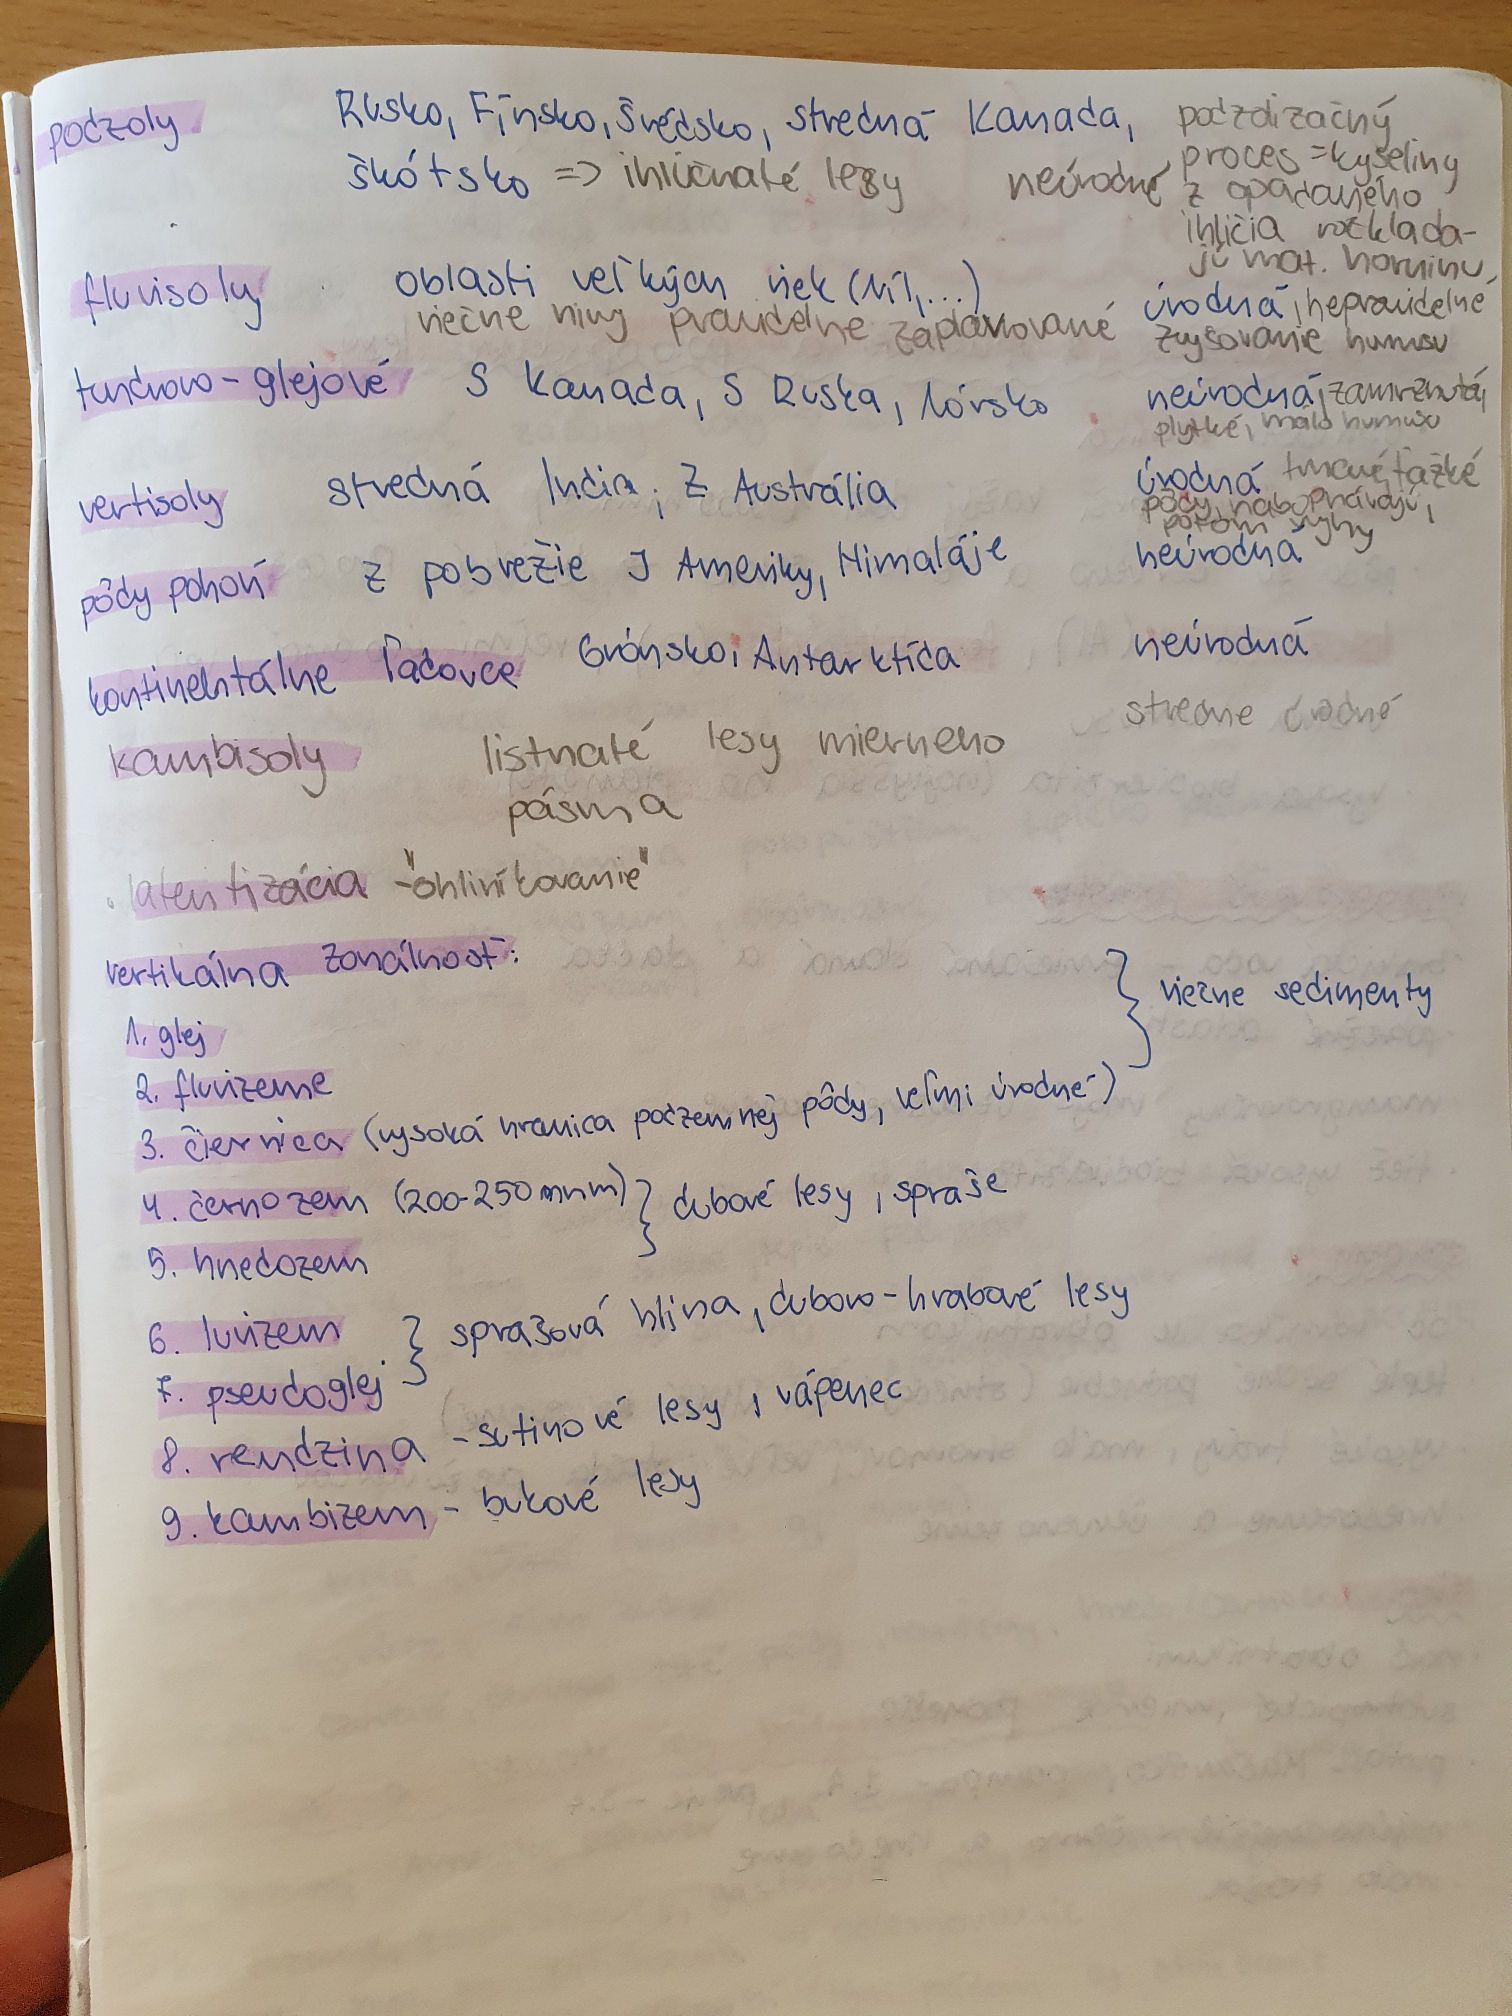 podzoly Rusko, Fínsko, Švédsko, stredná Kanada, podzolizačný
škótsko => ihličnaté lesy neúrodné proces = kyseliny
z opadaného
ihličia rozklada-
jú mat. horninu,
fluvisoly oblasti veľkých riek (Níl, ...) úrodná, nepravidelné
riečne nivy pravidelne zaplavované zvyšovanie humusu
tundrovo-glejové S Kanada, S Ruska, Nórsko neúrodná, zamrznutá,
plytké, málo humusu
vertisoly stredná India, Z Austrália úrodná tmavé, ťažké
pôdy, napučiavajú,
potom
pôdy pohorí Z pobrežie J Ameriky, Himaláje neúrodná
kontinentálne ľadovce Grónsko, Antarktída neúrodná
kambisoly listnaté lesy mierneho stredne úrodné
pásma
. latentizácia - "ohliníkovanie"
vertikálna zonálnosť:
1. glej
2. fluvizeme } riečne sedimenty
3. čiernica (vysoká hranica podzemnej pôdy, veľmi úrodné)
4. černozem (200-250 mnm) } dubové lesy, spraše
5. hnedozem
6. luvizem } sprašová hlina, dubovo-hrabové lesy
7. pseudoglej
8. rendzina - sutinové lesy, vápenec
9. kambizem - bukové lesy